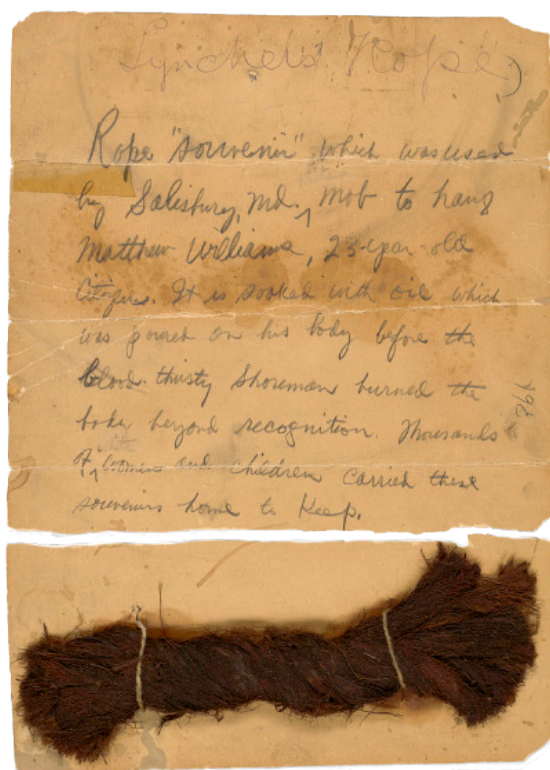 Lynchers' Rope)
Rope "souvenir" which was used
by Salisbury, Md., mob to hang
Matthew Williams, 23-year-old
citizen. It is soaked with oil which
was poured on his body before the
blood-thirsty Shoreman burned the
body beyond recognition. Thousands
of women and children carried these
souvenirs home to keep.